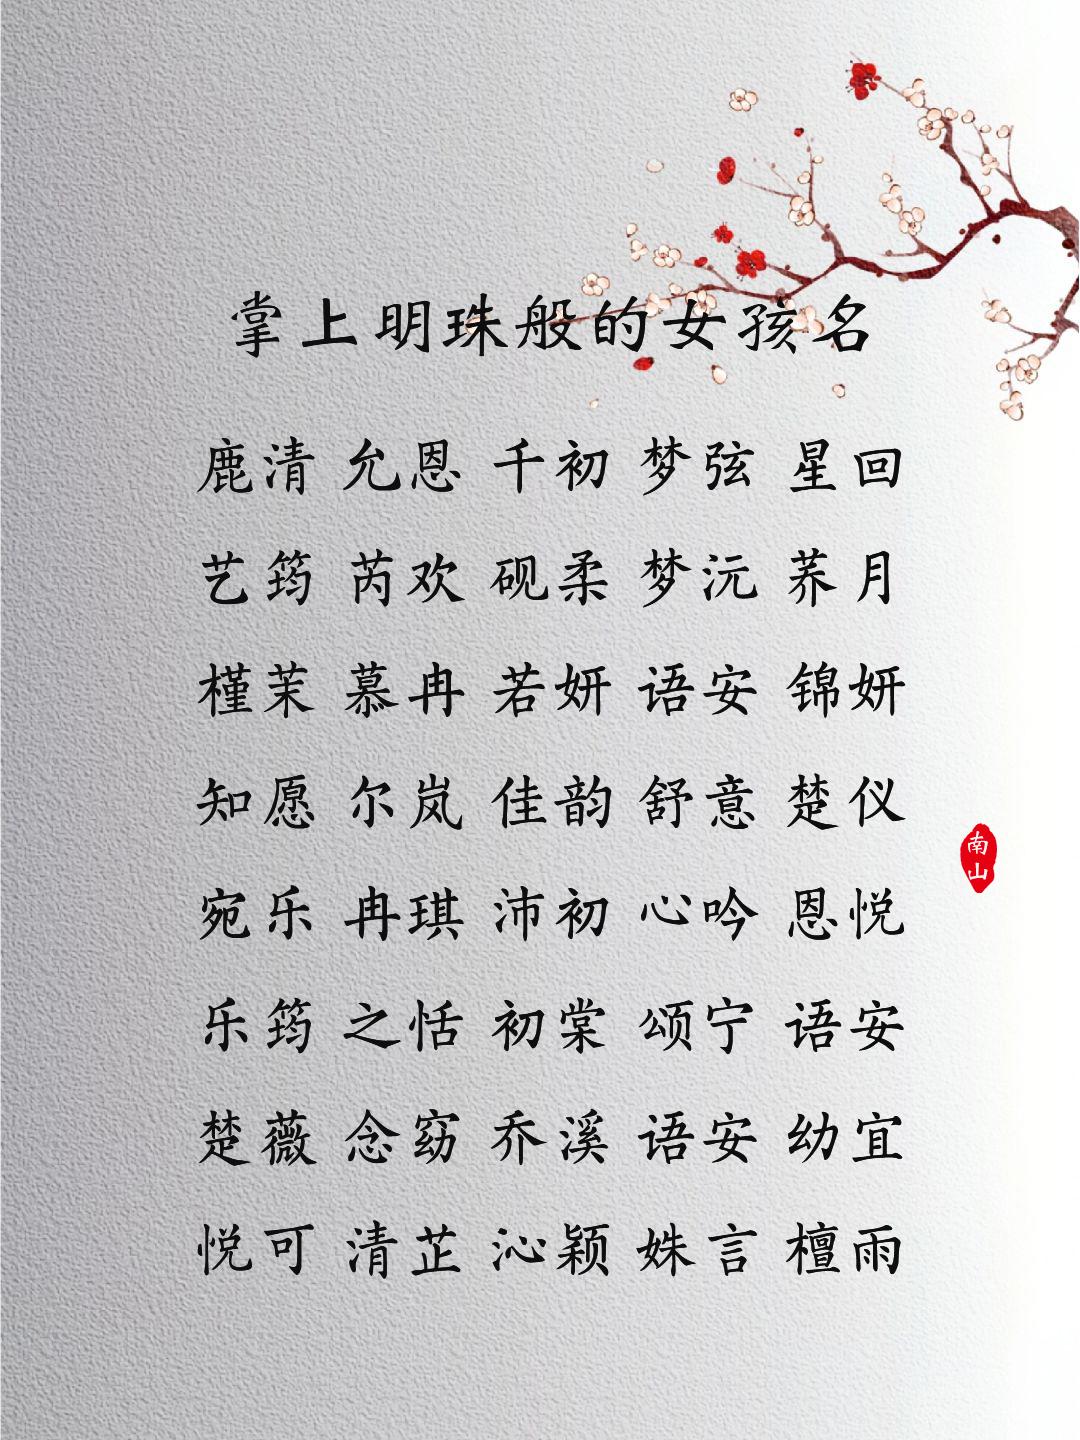 掌上明珠般的女孩名
鹿清 允恩 千初 梦弦 星回
艺筠 芮欢 砚柔 梦沅 荞月
槿茉 慕冉 若妍 语安 锦妍
知愿 尔岚 佳韵 舒意 楚仪
南山
宛乐 冉琪 沛初 心吟 恩悦
乐筠 之恬 初棠 颂宁 语安
楚薇 念窈 乔溪 语安 幼宜
悦可 清芷 沁颖 姝言 檀雨